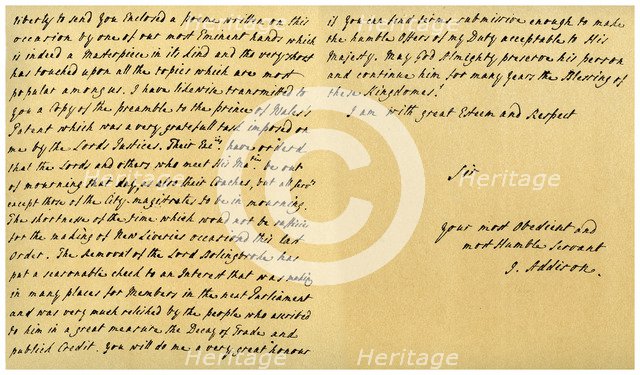 liberty to send you Enclosed a poem written on this
occasion by one of our most Eminent hands which
is indeed a Masterpiece in its kind and tho very short
has touched upon all the topics which are most
popular among us. I have likewise transmitted to
you a Copy of the preamble to the prince of Wales's
Patent which was a very gratefull task imposed on
me by the Lords Justices. Their Exc:ies have orderd
that the Lords and others who meet His Ma:tie be out
of mourning that day, as also their Coaches, but all serv:ts
except those of the City-magistrates to be in mourning.
The shortness of the time which woud not be suffice
for the making of New Liveries occasiond this last
Order. The Removal of the Lord Bolingbroke has
put a seasonable check to an Interest that was making
in many places for Members in the next Parliament
and was very much relished by the people who ascribed
to him in a great measure the Decay of Trade and
publick Credit. you will do me a very great honour
if you can find terms submissive enough to make
the humble Offers of my Duty acceptable to His
Majesty. May God Almighty preserve his person
and continue him for many years the Blessing of
these Kingdomes!
I am with great Esteem and Respect
Sir
your most Obedient and
most Humble Servant
J. Addison.
Heritage
Heritage
Heritage
Heritage
Heritage
Heritage
C